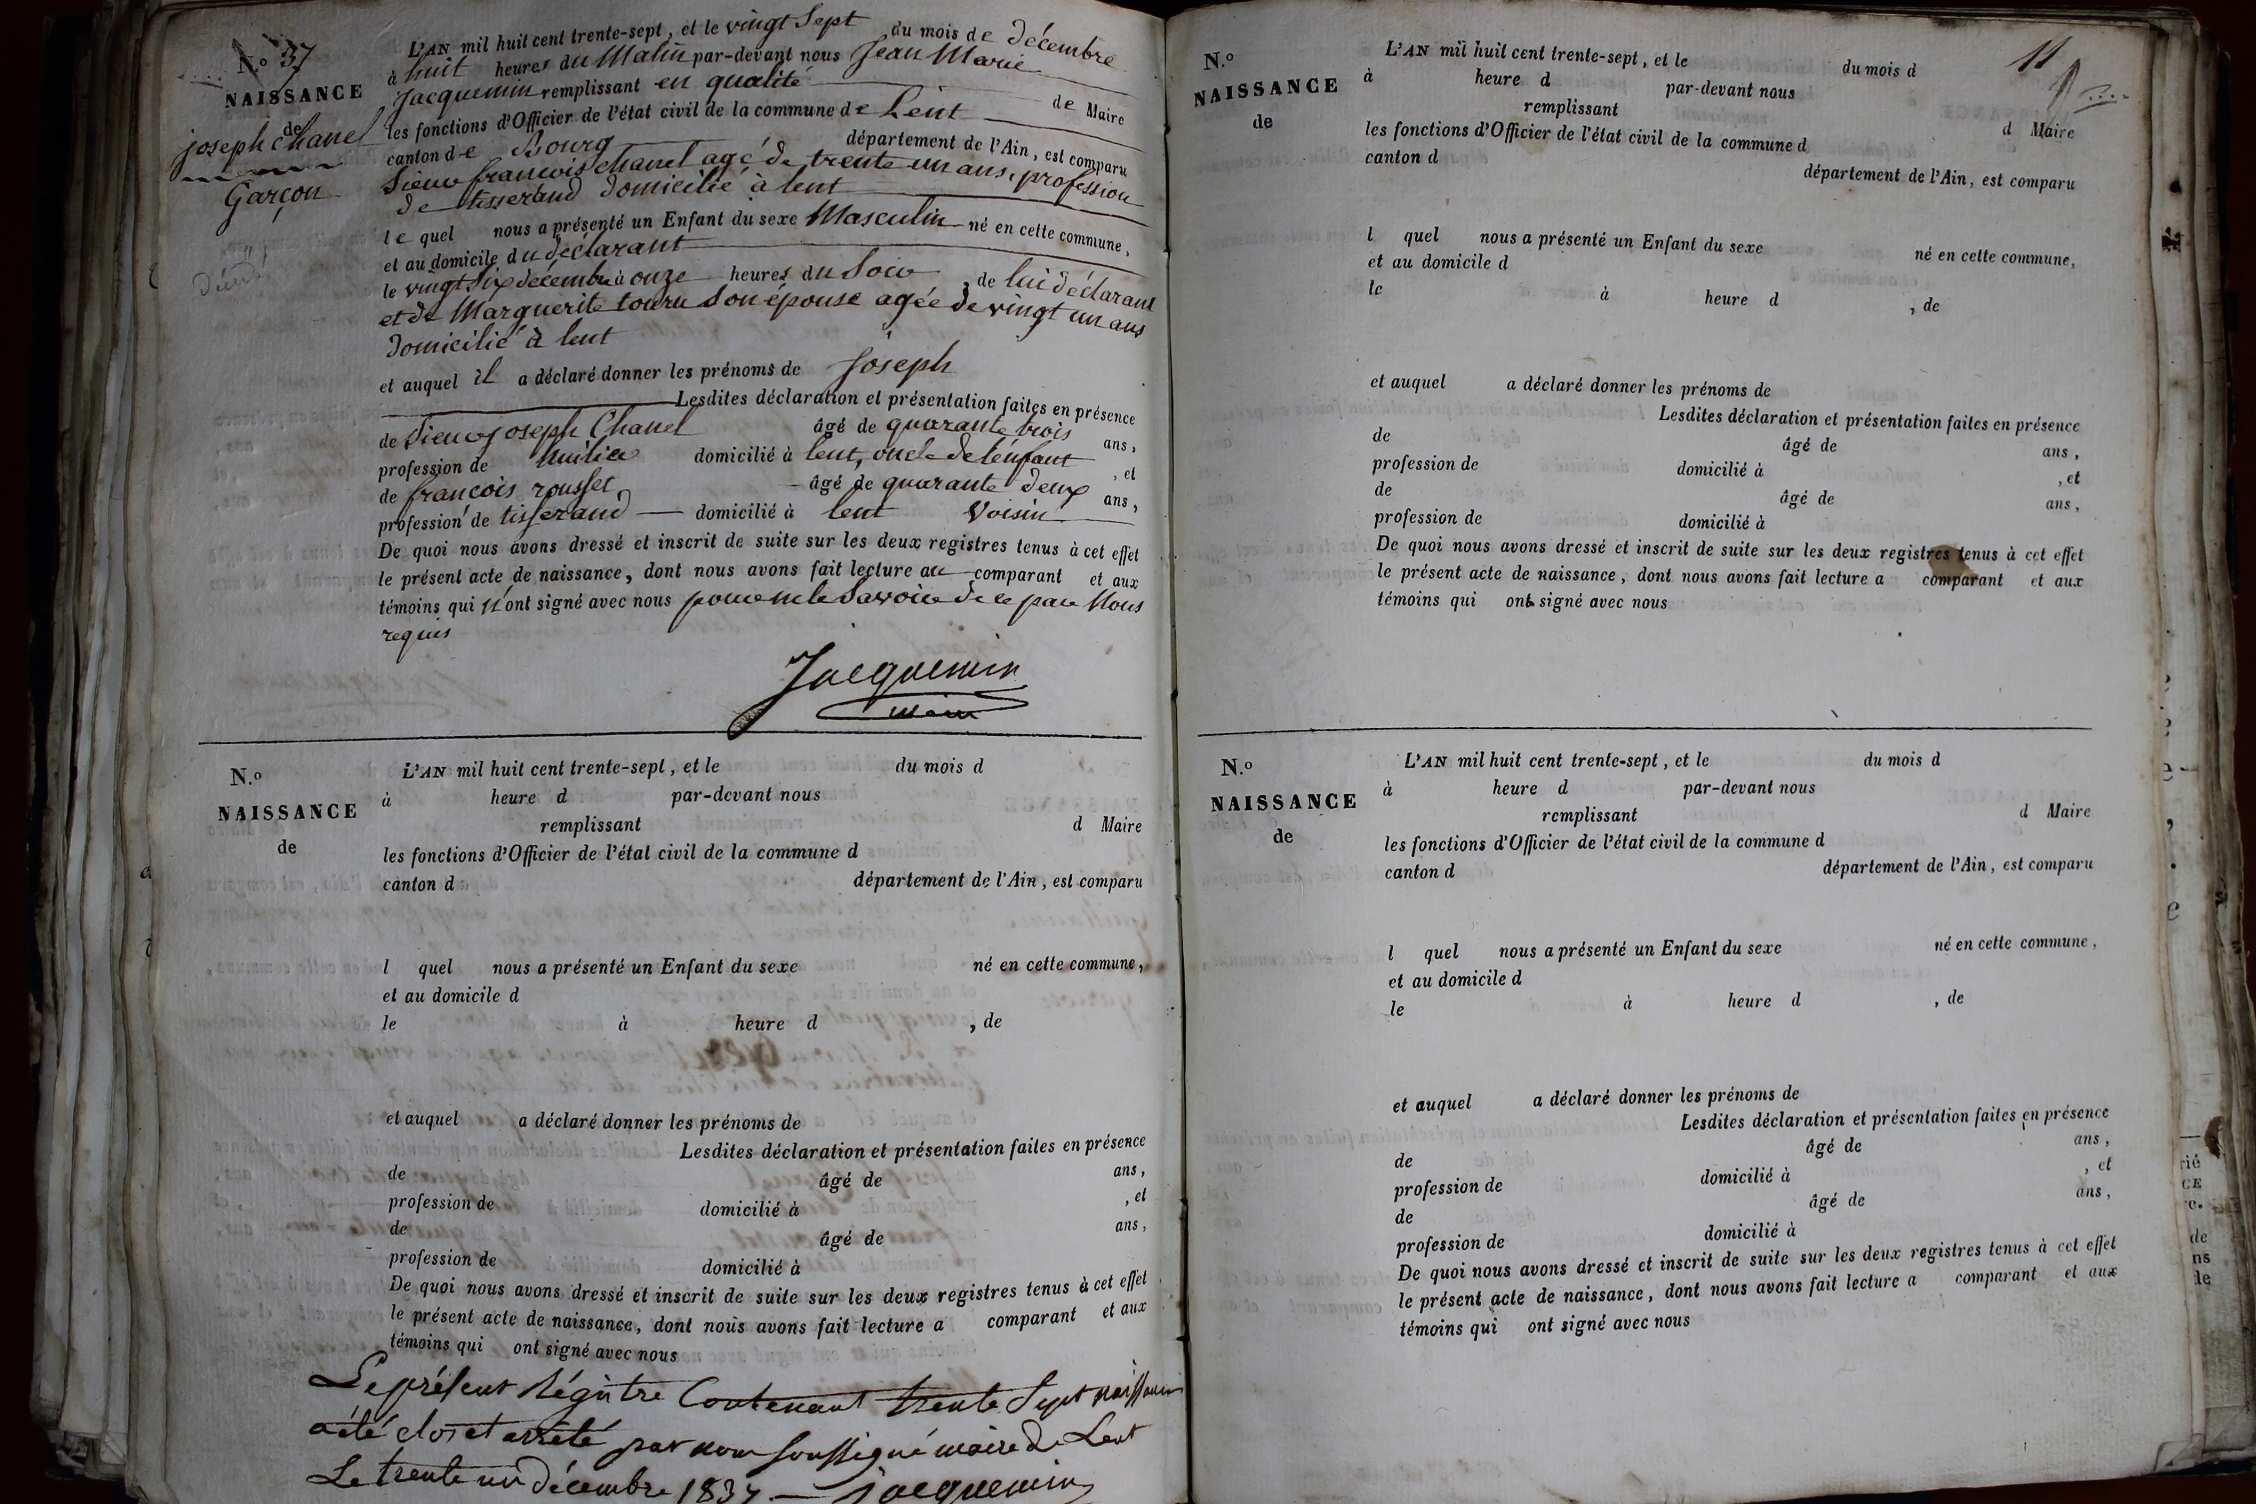 N.o 37
NAISSANCE
de
joseph Chanel
Garçon
L'AN mil huit cent trente-sept, et le vingt Sept du mois de décembre
à huit heures du Matin par-devant nous Jean Marie
Jacquemin remplissant en qualité de Maire
les fonctions d'Officier de l'état civil de la commune de Lent
canton de Bourg département de l'Ain, est comparu
Sieur francois Chanel agé de trente un ans, profession
de tisserand domicilié à lent
le quel nous a présenté un Enfant du sexe Masculin né en cette commune,
et au domicile du déclarant
le vingt Six décembre à onze heures du Soir, de lui déclarant
et de Marguerite touru Son épouse agée de vingt un ans
domicilié à lent
et auquel il a déclaré donner les prénoms de joseph
Lesdites déclaration et présentation faites en présence
de Sieur joseph Chanel âgé de quarante trois ans,
profession de domicilié à lent, oncle de l'énfant, et
de francois rousset âgé de quarante deux ans,
profession de tisserand domicilié à lent Voisin
De quoi nous avons dressé et inscrit de suite sur les deux registres tenus à cet effet
le présent acte de naissance, dont nous avons fait lecture au comparant et aux
témoins qui n'ont signé avec nous pour ne le Savoir de ce par Nous
requis
Jacquemin
maire
N.o
NAISSANCE
de
L'AN mil huit cent trente-sept, et le du mois d
à heure d par-devant nous
remplissant d Maire
les fonctions d'Officier de l'état civil de la commune d
canton d département de l'Ain, est comparu
l quel nous a présenté un Enfant du sexe né en cette commune,
et au domicile d
le à heure d , de
et auquel a déclaré donner les prénoms de
Lesdites déclaration et présentation faites en présence
de âgé de ans,
profession de domicilié à , et
de âgé de ans,
profession de domicilié à
De quoi nous avons dressé et inscrit de suite sur les deux registres tenus à cet effet
le présent acte de naissance, dont nous avons fait lecture a comparant et aux
témoins qui ont signé avec nous
Le présent Régistre Contenant trente Sept naissances
a été clos et arrêté par nous soussigné maire de Lent
Le trente un décembre 1837 — Jacquemin
11
N.o
NAISSANCE
de
L'AN mil huit cent trente-sept, et le du mois d
à heure d par-devant nous
remplissant d Maire
les fonctions d'Officier de l'état civil de la commune d
canton d département de l'Ain, est comparu
l quel nous a présenté un Enfant du sexe né en cette commune,
et au domicile d
le à heure d , de
et auquel a déclaré donner les prénoms de
Lesdites déclaration et présentation faites en présence
de âgé de ans,
profession de domicilié à , et
de âgé de ans,
profession de domicilié à
De quoi nous avons dressé et inscrit de suite sur les deux registres tenus à cet effet
le présent acte de naissance, dont nous avons fait lecture a comparant et aux
témoins qui ont signé avec nous
N.o
NAISSANCE
de
L'AN mil huit cent trente-sept, et le du mois d
à heure d par-devant nous
remplissant d Maire
les fonctions d'Officier de l'état civil de la commune d
canton d département de l'Ain, est comparu
l quel nous a présenté un Enfant du sexe né en cette commune,
et au domicile d
le à heure d , de
et auquel a déclaré donner les prénoms de
Lesdites déclaration et présentation faites en présence
de âgé de ans,
profession de domicilié à , et
de âgé de ans,
profession de domicilié à
De quoi nous avons dressé et inscrit de suite sur les deux registres tenus à cet effet
le présent acte de naissance, dont nous avons fait lecture a comparant et aux
témoins qui ont signé avec nous